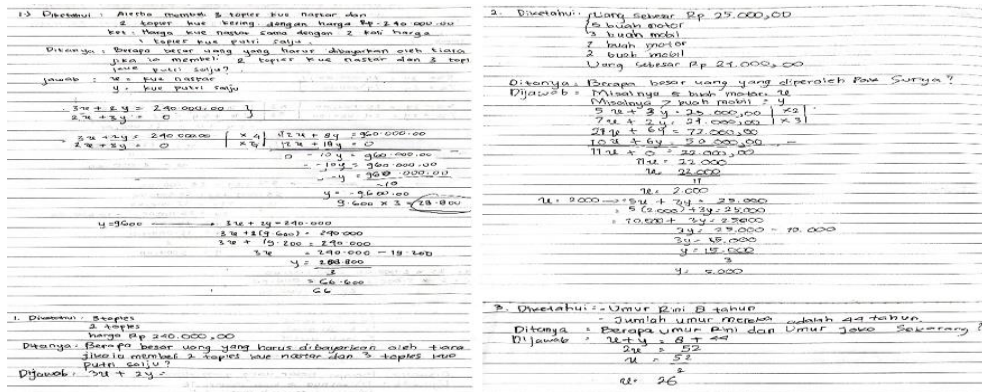 1.) Diketahui : Aisha membeli 3 toples kue nastar dan
2 toples kue kering dengan harga Rp. 240.000.00
ket : Harga kue nastar sama dengan 2 kali harga
1 toples kue putri salju.
Ditanya : Berapa besar uang yang harus dibayarkan oleh tiara
jika ia membeli 2 toples kue nastar dan 3 topl
kue putri salju?
Jawab : x = kue nastar
y = kue putri salju
3x + 2y = 240.000.00
2x + 3y = 0
3x + 2y = 240.000.00 | x 4 | 12x + 8y = 960.000.00
2x + 3y = 0
0 - 10y = 960.000.00
-10y = 960.000.00
-y = 960.000.00
-10
y = -9.600.00
9.600 x 3 = 28.800
y = 9600 → 3x + 2y = 240.000
3x + 2(9.600) = 240.000
3x + 19.200 = 240.000
3x = 240.000 - 19.200
y =
3
= 66.600
66
1. Diketahui : 3 toples
2 toples
harga Rp 240.000,00
Ditanya : Berapa besar uang yang harus dibayarkan oleh tiara
jika ia membeli 2 toples kue nastar dan 3 toples kue
putri salju?
Dijawab : 3x + 2y =
2. Diketahui : Uang sebesar Rp 25.000,00
5 buah motor
3 buah mobil
7 buah motor
2 buah mobil
Uang sebesar Rp 21.000,00
Ditanya : Berapa besar uang yang diperoleh Pak Surya?
Dijawab : Misalnya 5 buah motor : x
Misalnya 7 buah mobil : y
5x + 3y = 25.000,00 | x2 |
7x + 2y = 21.000,00 | x3 |
21x + 6y = 72.000,00
10x + 6y = 50.000,00 -
11x + 0 = 22.000,00
11x = 22.000
x = 22.000
11
x = 2.000
x = 2000 → 5x + 3y = 25.000
= 5(2.000) + 3y = 25.000
= 10.000 + 3y = 25.000
3y = 25.000 - 10.000
3y = 15.000
y = 15.000
3
y = 5.000
3. Diketahui : - Umur Rini 8 tahun
- Jumlah umur mereka adalah 44 tahun.
Ditanya : Berapa umur Rini dan Umur Joko Sekarang?
Dijawab : x + y = 8 + 44
2x = 52
x = 52
2
x = 26